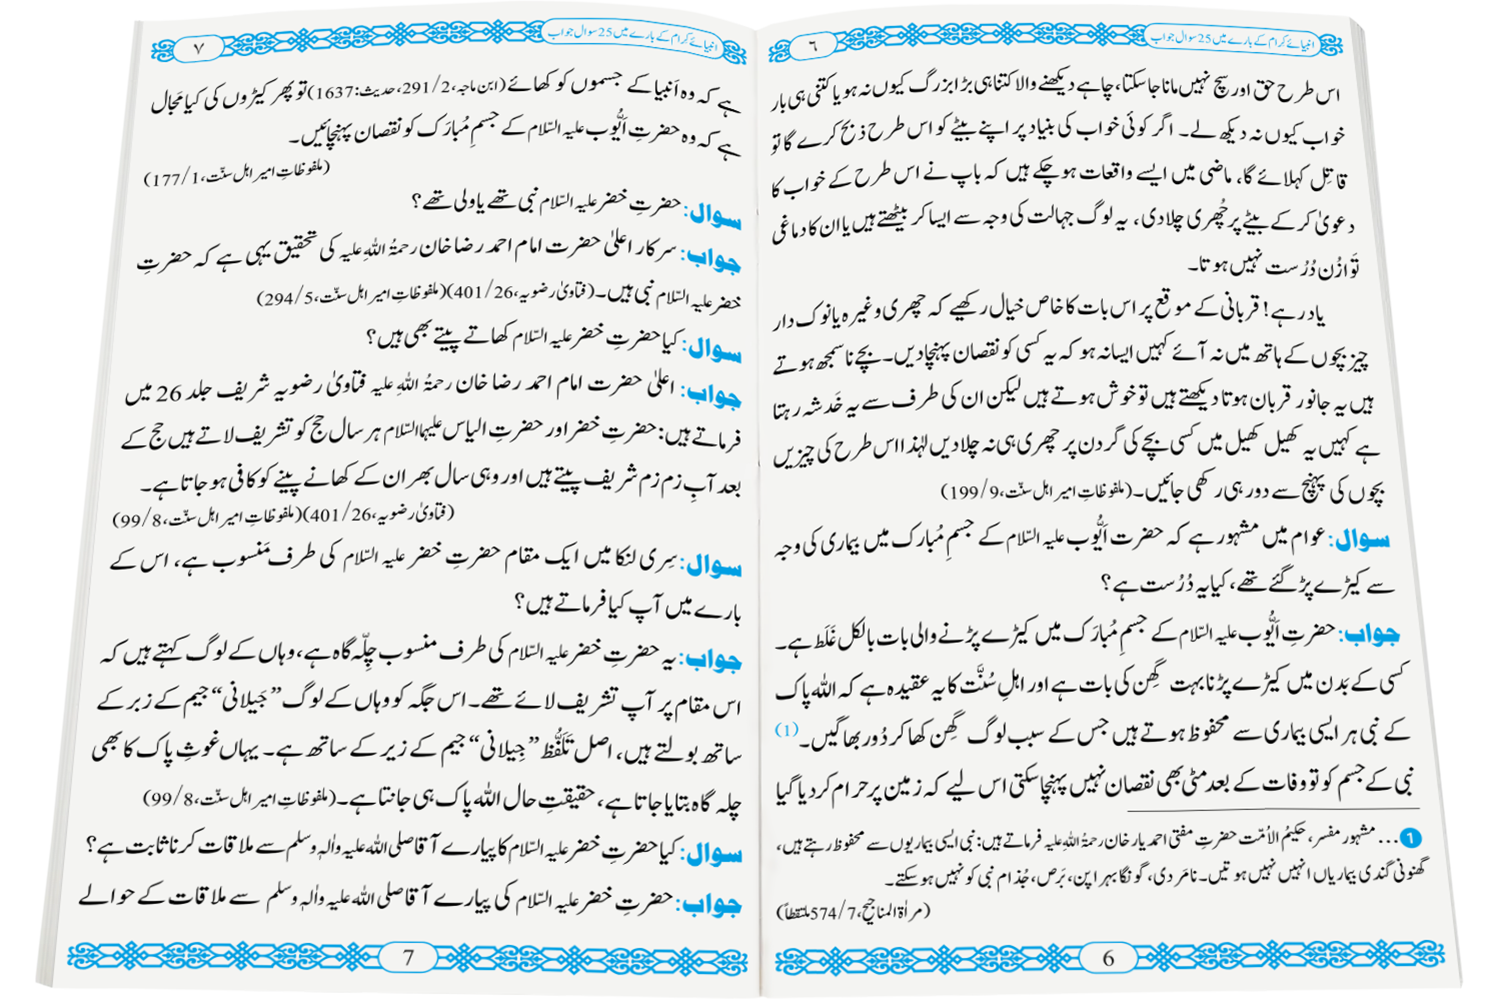 انبیائے کرام کے بارے میں 25 سوال جواب
٦
اس طرح حق اور سچ نہیں مانا جا سکتا، چاہے دیکھنے والا کتنا ہی بڑا بزرگ کیوں نہ ہو یا کتنی ہی بار
خواب کیوں نہ دیکھ لے۔ اگر کوئی خواب کی بنیاد پر اپنے بیٹے کو اس طرح ذبح کرے گا تو
قاتِل کہلائے گا، ماضی میں ایسے واقعات ہو چکے ہیں کہ باپ نے اس طرح کے خواب کا
دعویٰ کر کے بیٹے پر چُھری چلا دی، یہ لوگ جہالت کی وجہ سے ایسا کر بیٹھتے ہیں یا ان کا دماغی
تَوازُن دُرُست نہیں ہوتا۔
یاد رہے! قربانی کے موقع پر اس بات کا خاص خیال رکھیے کہ چھری وغیرہ یا نوک دار
چیز بچوں کے ہاتھ میں نہ آئے کہیں ایسا نہ ہو کہ یہ کسی کو نقصان پہنچا دیں۔ بچے ناسمجھ ہوتے
ہیں یہ جانور قربان ہوتا دیکھتے ہیں تو خوش ہوتے ہیں لیکن ان کی طرف سے یہ خَدشہ رہتا
ہے کہیں یہ کھیل کھیل میں کسی بچے کی گردن پر چھری ہی نہ چلا دیں لہٰذا اس طرح کی چیزیں
بچوں کی پہنچ سے دور ہی رکھی جائیں۔ (ملفوظاتِ امیر اہل سنّت، 199/9)
سوال: عوام میں مشہور ہے کہ حضرت اَیُّوب علیہ السّلام کے جسمِ مُبارک میں بیماری کی وجہ
سے کیڑے پڑ گئے تھے، کیا یہ دُرُست ہے؟
جواب: حضرتِ اَیُّوب علیہ السّلام کے جسمِ مُبارَک میں کیڑے پڑنے والی بات بالکل غَلَط ہے۔
کسی کے بَدن میں کیڑے پڑنا بہت گِھن کی بات ہے اور اہلِ سُنَّت کا یہ عقیدہ ہے کہ اللہ پاک
کے نبی ہر ایسی بیماری سے محفوظ ہوتے ہیں جس کے سبب لوگ گِھن کھا کر دُور بھاگیں۔ (1)
نبی کے جسم کو تو وفات کے بعد مٹی بھی نقصان نہیں پہنچا سکتی اس لیے کہ زمین پر حرام کر دیا گیا
1 … مشہور مفسر، حکیمُ الاُمّت حضرتِ مفتی احمد یار خان رحمۃُ اللہِ علیہ فرماتے ہیں: نبی ایسی بیماریوں سے محفوظ رہتے ہیں،
گھنونی گندی بیماریاں انہیں نہیں ہوتیں۔ نامَردی، گونگا بہرا پن، بَرص، جُذام نبی کو نہیں ہو سکتے۔
(مراٰۃ المناجیح، 574/7 ملتقطاً)
6
انبیائے کرام کے بارے میں 25 سوال جواب
٧
ہے کہ وہ اَنبیا کے جسموں کو کھائے (ابن ماجہ، 291/2، حدیث: 1637) تو پھر کیڑوں کی کیا مَجال
ہے کہ وہ حضرتِ اَیُّوب علیہ السّلام کے جسمِ مُبارَک کو نقصان پہنچائیں۔
(ملفوظاتِ امیر اہل سنّت، 177/1)
سوال: حضرتِ خضر علیہ السّلام نبی تھے یا ولی تھے؟
جواب: سرکار اعلیٰ حضرت امام احمد رضا خان رحمۃُ اللہِ علیہ کی تحقیق یہی ہے کہ حضرتِ
خضر علیہ السّلام نبی ہیں۔ (فتاویٰ رضویہ، 401/26) (ملفوظاتِ امیر اہل سنّت، 294/5)
سوال: کیا حضرتِ خضر علیہ السّلام کھاتے پیتے بھی ہیں؟
جواب: اعلیٰ حضرت امام احمد رضا خان رحمۃُ اللہِ علیہ فتاویٰ رضویہ شریف جلد 26 میں
فرماتے ہیں: حضرتِ خضر اور حضرتِ الیاس علیہما السّلام ہر سال حج کو تشریف لاتے ہیں حج کے
بعد آبِ زم زم شریف پیتے ہیں اور وہی سال بھر ان کے کھانے پینے کو کافی ہو جاتا ہے۔
(فتاویٰ رضویہ، 401/26) (ملفوظاتِ امیر اہل سنّت، 99/8)
سوال: سِری لنکا میں ایک مقام حضرتِ خضر علیہ السّلام کی طرف مَنسوب ہے، اس کے
بارے میں آپ کیا فرماتے ہیں؟
جواب: یہ حضرتِ خضر علیہ السّلام کی طرف منسوب چِلّہ گاہ ہے، وہاں کے لوگ کہتے ہیں کہ
اس مقام پر آپ تشریف لائے تھے۔ اس جگہ کو وہاں کے لوگ ”جَیلانی“ جیم کے زبر کے
ساتھ بولتے ہیں، اصل تَلَفُّظ ”جِیلانی“ جیم کے زیر کے ساتھ ہے۔ یہاں غوثِ پاک کا بھی
چلہ گاہ بتایا جاتا ہے، حقیقتِ حال اللہ پاک ہی جانتا ہے۔ (ملفوظاتِ امیر اہل سنّت، 99/8)
سوال: کیا حضرتِ خضر علیہ السّلام کا پیارے آقا صلی اللہ علیہ واٰلہٖ وسلم سے ملاقات کرنا ثابت ہے؟
جواب: حضرتِ خضر علیہ السّلام کی پیارے آقا صلی اللہ علیہ واٰلہٖ وسلم سے ملاقات کے حوالے
7